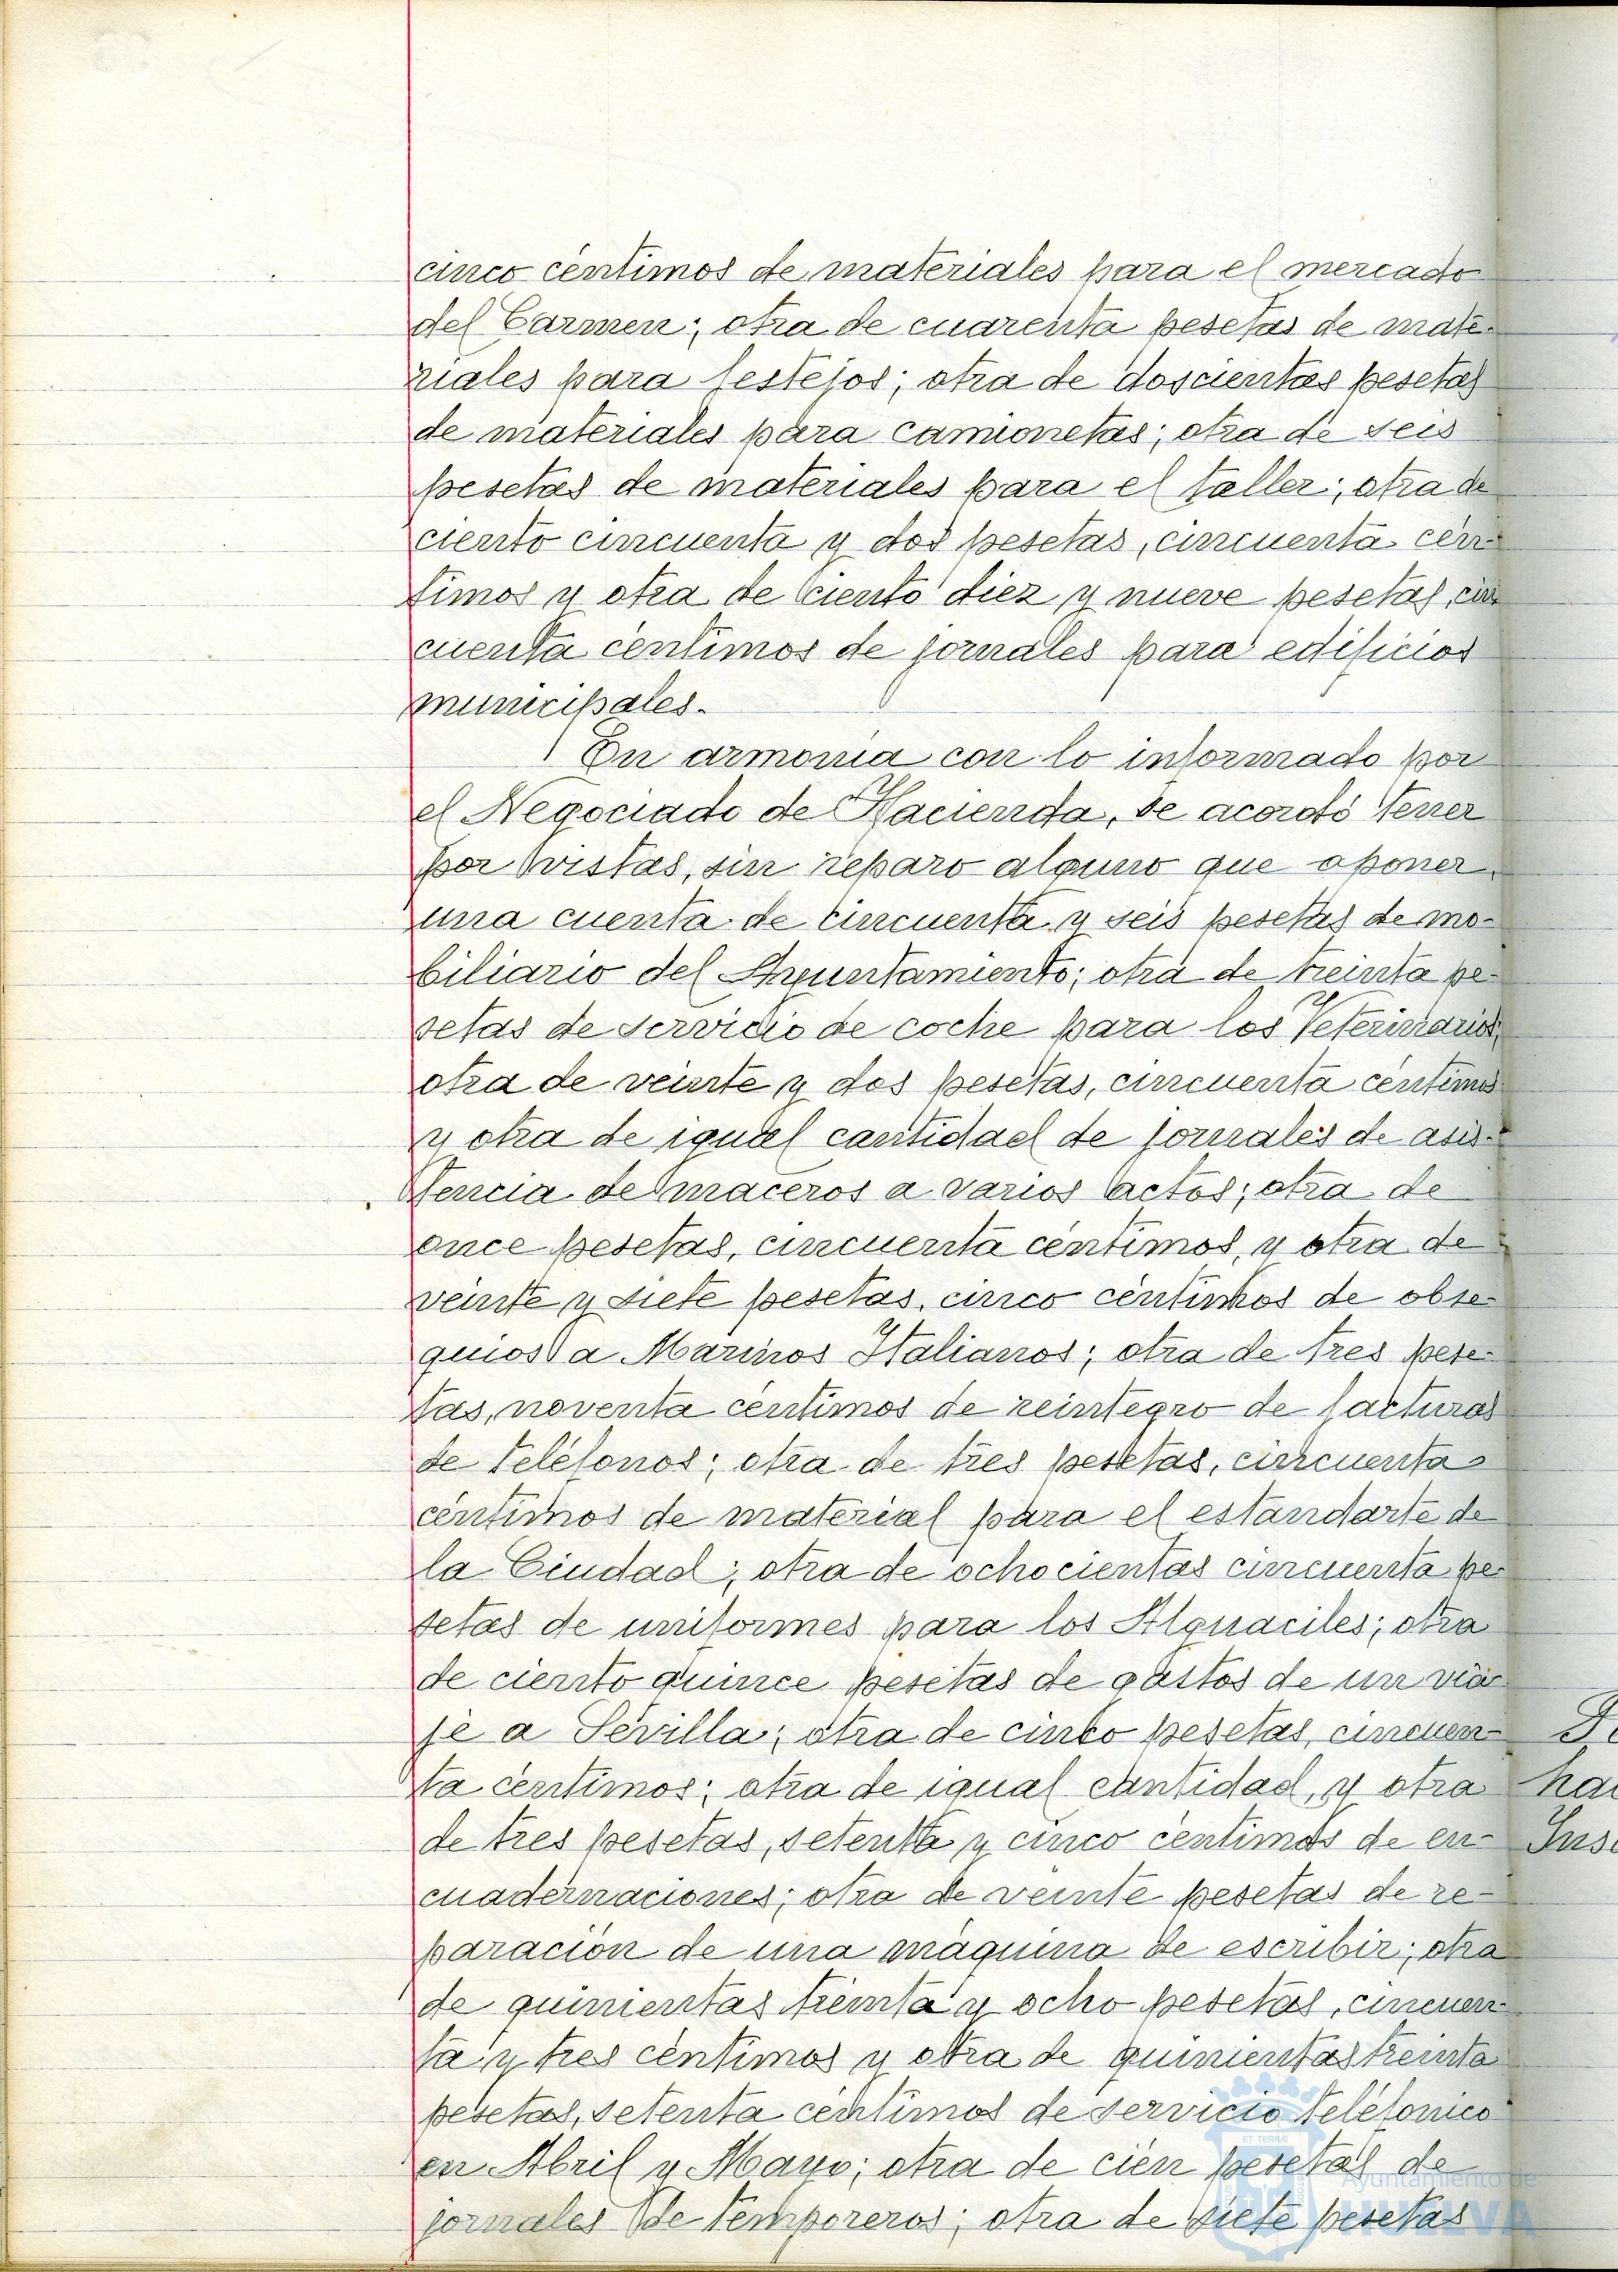 cinco céntimos de materiales para el mercado
del Carmen; otra de cuarenta pesetas de mate-
riales para festejos; otra de doscientas pesetas
de materiales para camionetas; otra de seis
pesetas de materiales para el taller; otra de
ciento cincuenta y dos pesetas, cincuenta cén-
timos y otra de ciento diez y nueve pesetas, cin-
cuenta céntimos de jornales para edificios
municipales.
En armonía con lo informado por
el Negociado de Hacienda, se acordó tener
por vistas, sin reparo alguno que oponer,
una cuenta de cincuenta y seis pesetas de mo-
biliario del Ayuntamiento; otra de treinta pe-
setas de servicio de coche para los Veterinarios;
otra de veinte y dos pesetas, cincuenta céntimos
y otra de igual cantidad de jornales de asis-
tencia de maceros a varios actos; otra de
once pesetas, cincuenta céntimos, y otra de
veinte y siete pesetas, cinco céntimos de obse-
quios a Marinos Italianos; otra de tres pese-
tas, noventa céntimos de reintegro de facturas
de teléfonos; otra de tres pesetas, cincuenta
céntimos de material para el estandarte de
la Ciudad; otra de ochocientas cincuenta pe-
setas de uniformes para los Alguaciles; otra
de ciento quince pesetas de gastos de un via-
je a Sevilla; otra de cinco pesetas, cincuen-
ta céntimos; otra de igual cantidad, y otra
de tres pesetas, setenta y cinco céntimos de en-
cuadernaciones; otra de veinte pesetas de re-
paración de una máquina de escribir; otra
de quinientas treinta y ocho pesetas, cincuen-
ta y tres céntimos y otra de quinientas treinta
pesetas, setenta céntimos de servicio telefónico
en Abril y Mayo; otra de cien pesetas de
jornales de temporeros; otra de siete pesetas
ET TERRÆ
Ayuntamiento de
HUELVA